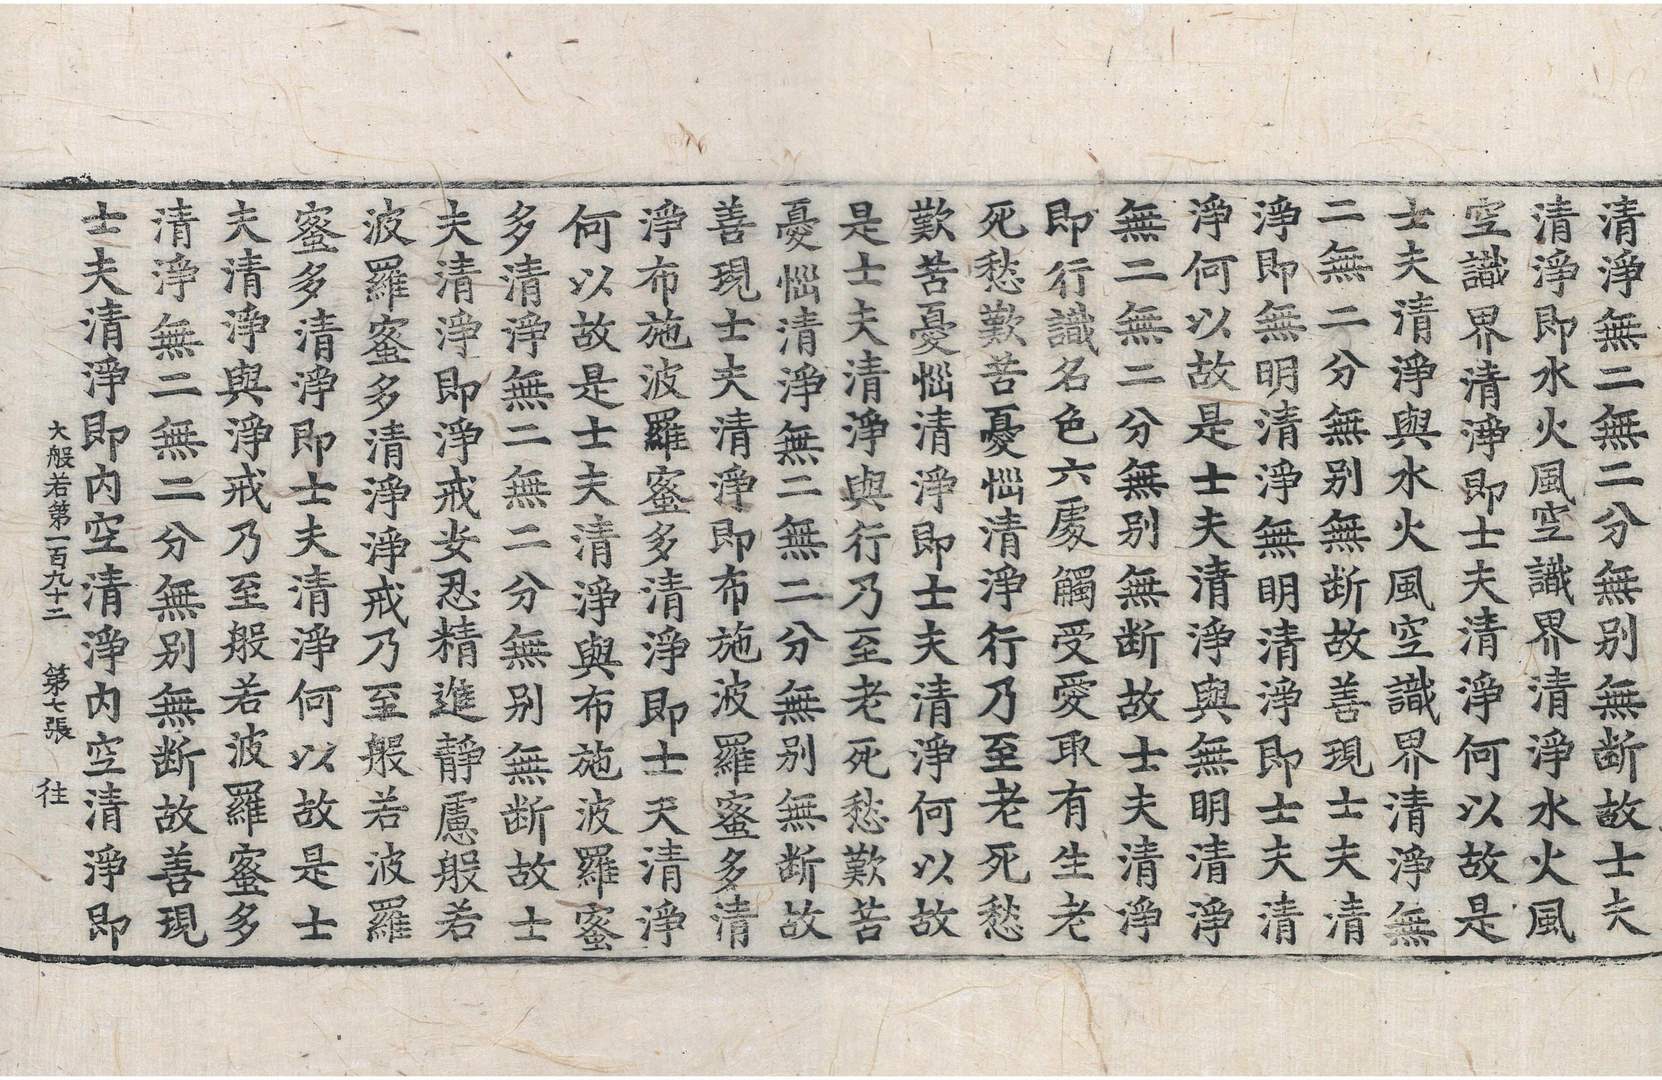 清淨無二無二分無別無断故士夫
清淨即水火風空識界清淨水火風
空識界清淨即士夫清淨何以故是
士夫清淨與水火風空識界清淨無
二無二分無別無断故善現士夫清
淨即無明清淨無明清淨即士夫清
淨何以故是士夫清淨與無明清淨
無二無二分無別無断故士夫清淨
即行識名色六處觸受愛取有生老
死愁歎苦憂惱清淨行乃至老死愁
歎苦憂惱清淨即士夫清淨何以故
是士夫清淨與行乃至老死愁歎苦
憂惱清淨無二無二分無別無断故
善現士夫清淨即布施波羅蜜多清
淨布施波羅蜜多清淨即士天清淨
何以故是士夫清淨與布施波羅蜜
多清淨無二無二分無別無断故士
夫清淨即淨戒安忍精進靜慮般若
波羅蜜多清淨淨戒乃至般若波羅
蜜多清淨即士夫清淨何以故是士
夫清淨與淨戒乃至般若波羅蜜多
清淨無二無二分無別無断故善現
士夫清淨即内空清淨内空清淨即
大般若第一百九十二 第七張 往